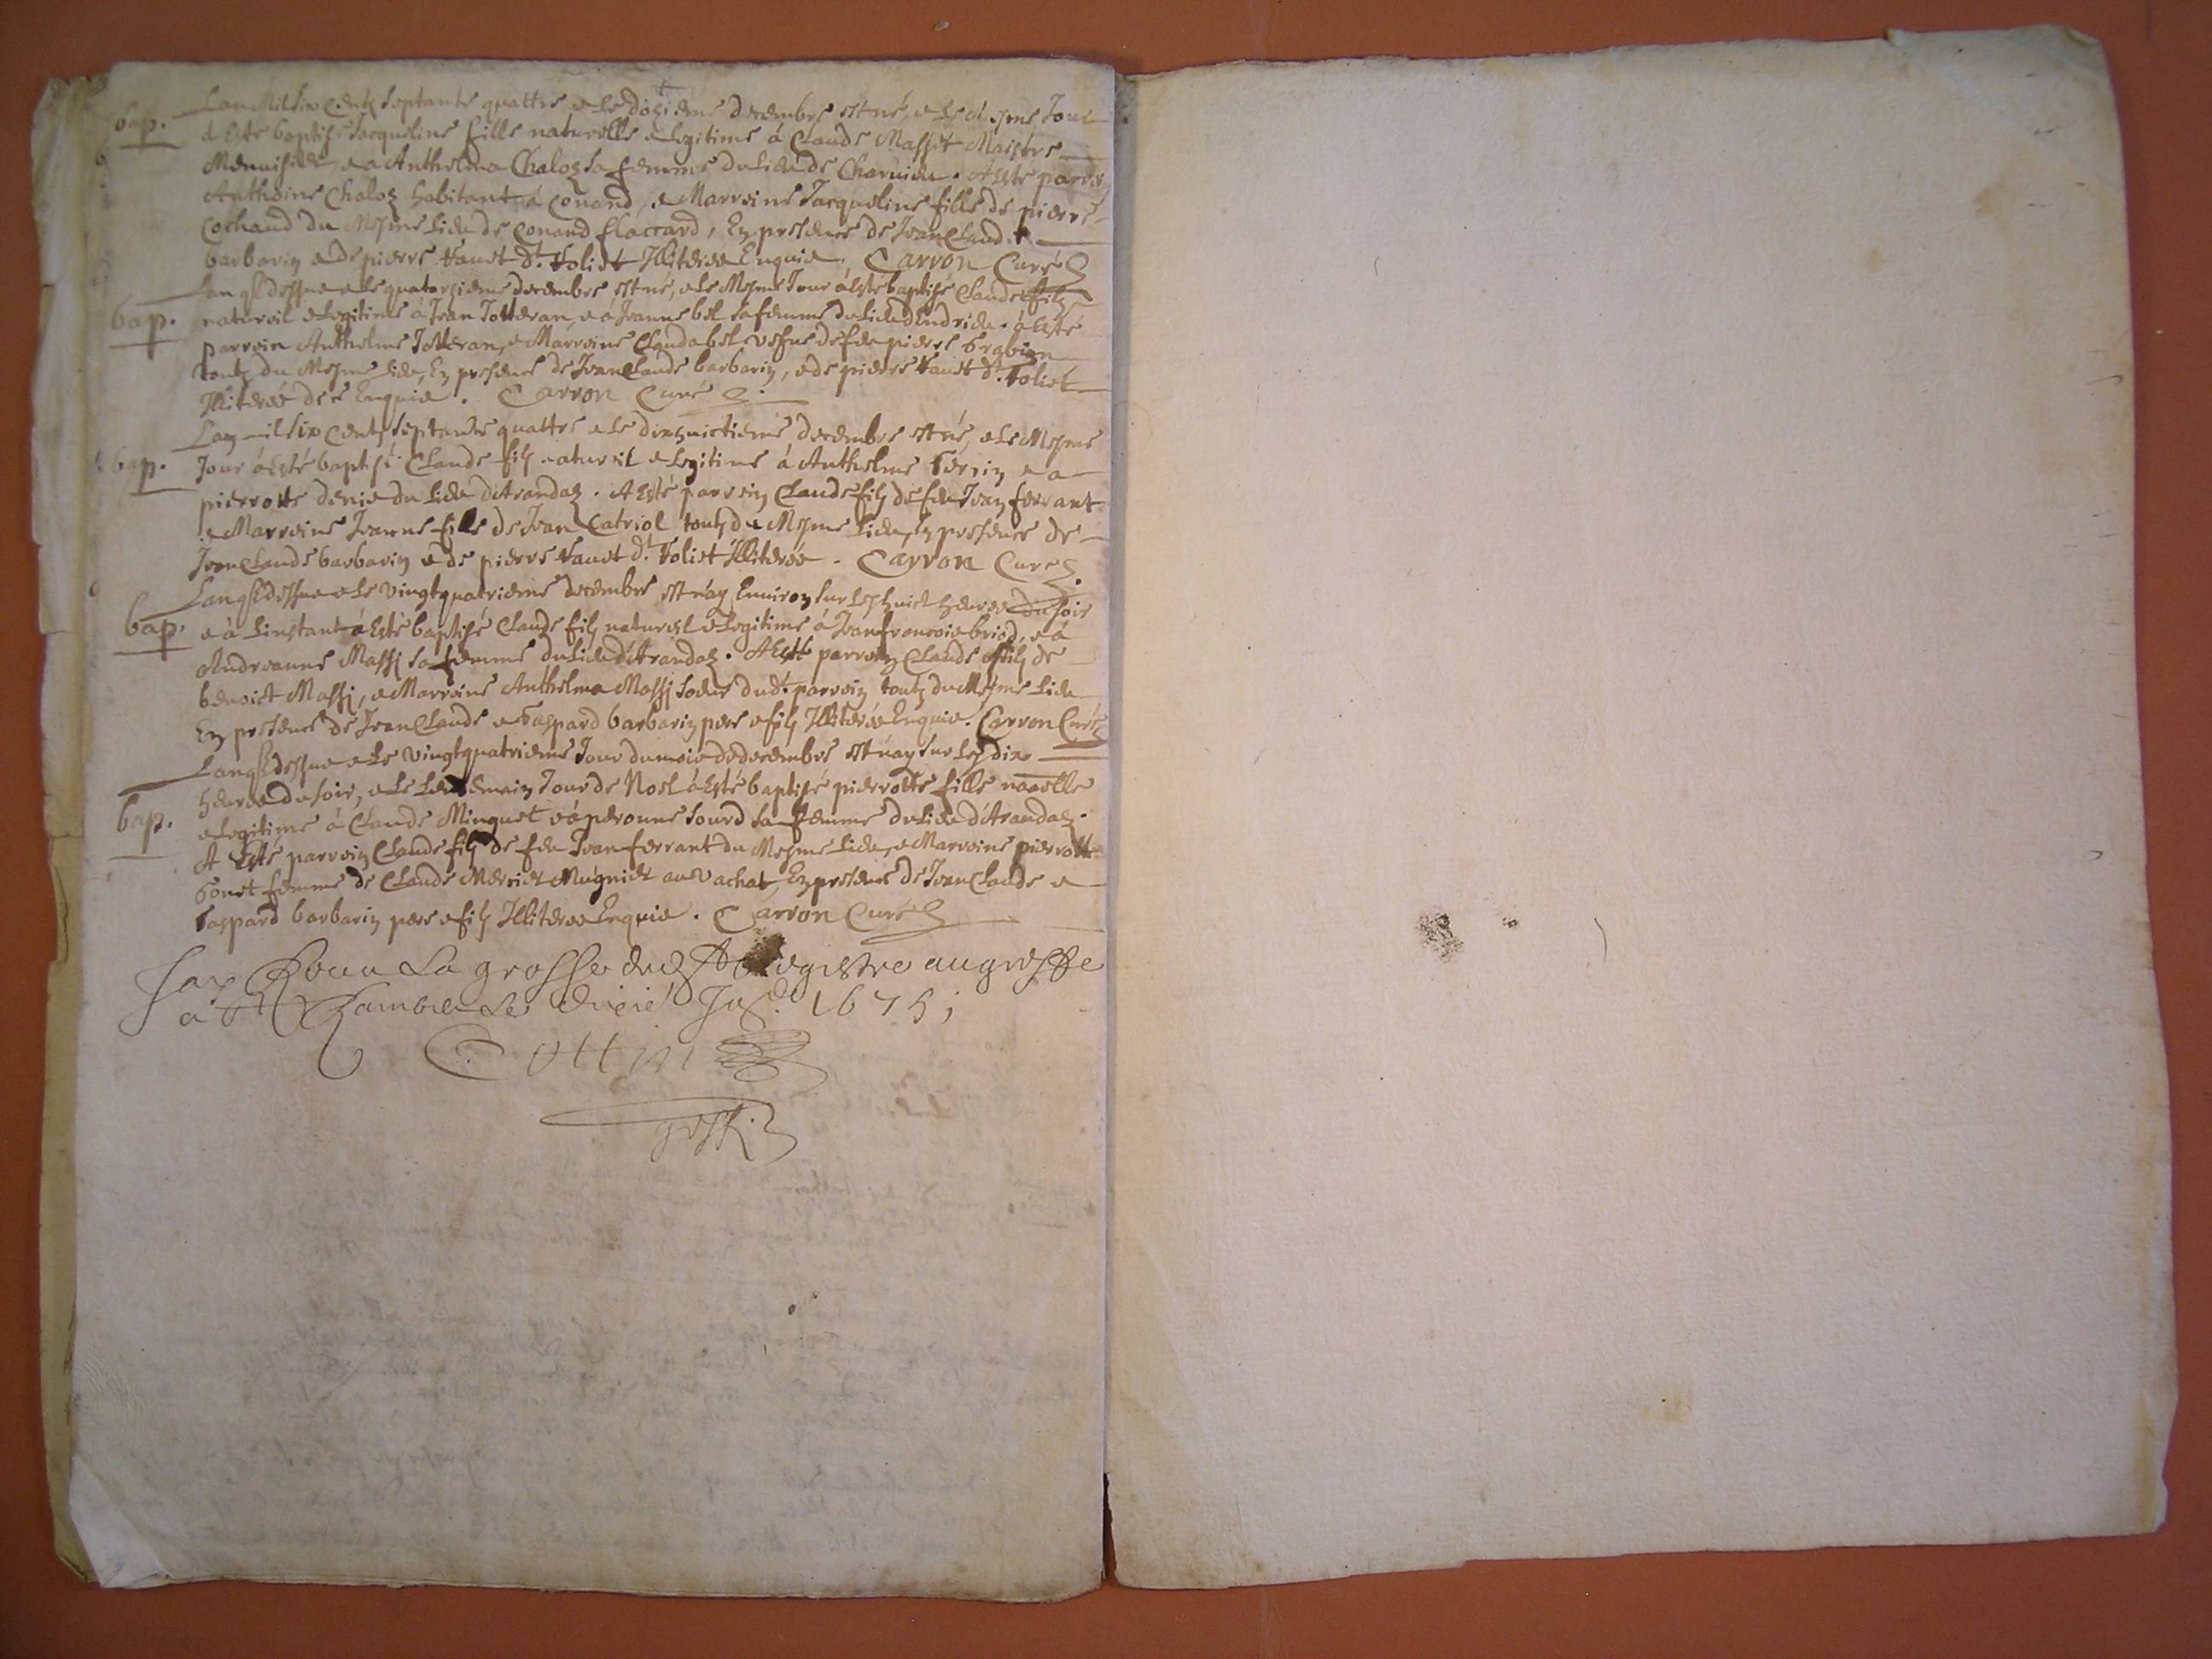 bap.
Lan Mil six centz septante quattre e le dozieme decembre est né, e le Mesme Jour
a Esté baptisé Jacqueline fille naturelle e legitime á Claude Massot Maistre
Menuisier, e a Anthelma Chaloz sa femme du lieu de Charuieu. A Esté parrein
Anthoine Chaloz habitant á Conand, e Marreine Jacqueline fille de pierre
Cochaud du Mesme lieu de Conand flaccard, En presence de Jean Claude
barbarin e de pierre Vauet dt. Voliet Illiteres Enquis. Carron Curé
bap.
Lan susdessus e le quatorzieme decembre est né, e le Mesme Jour á Esté baptisé Claude filz
naturel e legitime á Jean Jotteran, e á Jeanne bel sa femme du lieu dEndrieu. á Esté
parrein Anthelme Jotteran, e Marreine Clauda bel vefue de feu pierre
toutz du Mesme lieu, En presence de Jean Claude barbarin, e de pierre Vauet dt. Voliet
Illiteres Enquis. Carron Curé
bap.
Lan mil six centz septante quattre e le dixhuictieme decembre est né, e le Mesme
Jour á Esté baptisé Claude filz naturel e legitime á Anthelme e a
pierrotte du lieu dArandaz. A Esté parrein Claude filz de feu Jean ferrant
e Marreine Jeanne fille de Jean Catriol toutz du Mesme lieu, En presence de
Jean Claude barbarin e de pierre Vauet dt. Voliet Illiteres. Carron Curé
bap.
Lan susdessus e le vingtquatrieme decembre est nay Enuiron sur les huict heures du soir
e á Linstant á Esté baptisé Claude filz naturel e legitime á Jean francois briod, e á
Andreanne Massj sa femme du lieu dArandaz. A Esté parrein Claude filz de
benoict Massj, e Marreine Anthelma Massj soeur dudt. parrein toutz du Mesme lieu
En presence de Jean Claude e Gaspard barbarin pere e filz Illiteres Enquis. Carron Curé
bap.
Lan susdessus e le vingtquatrieme Jour du mois de decembre est nay sur les dix
heures du soir, e le Lendemain Jour de Noel á Esté baptisé pierrotte fille
e legitime á Claude Minguet e á peronne Sourd sa femme du lieu dArandaz.
A Esté parrein Claude filz de feu Jean ferrant du Mesme lieu, e Marreine pierrotte
femme de Claude Mercier Mugnier achat, En presence de Jean Claude e
Gaspard barbarin pere e filz Illiteres Enquis. Carron Curé
Jay Receu La grosse dud Registre au greffe
a St Rambert le 1675
Cottin
greff.